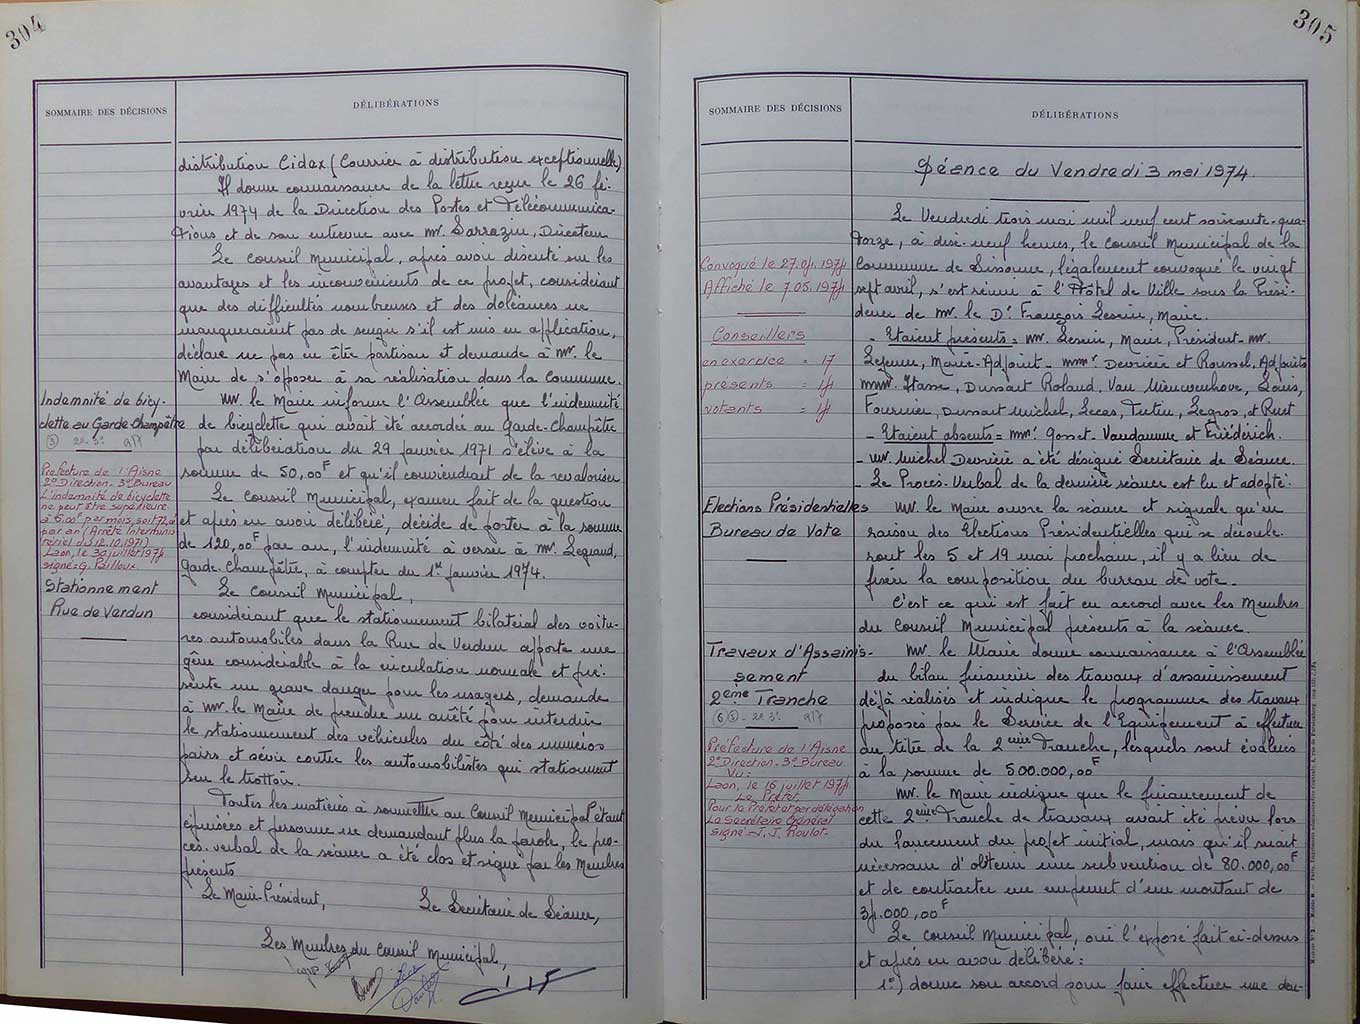 304
SOMMAIRE DES DÉCISIONS
DÉLIBÉRATIONS
distribution Cidex (Courrier à distribution exceptionnelle)
Il donne connaissance de la lettre reçue le 26 fé-
vrier 1974 de la Direction des Postes et Télécommunica-
tions et de son entrevue avec Mr. Sarrazin, Directeur
Le Conseil Municipal, après avoir discuté sur les
avantages et les inconvénients de ce projet, considérant
que des difficultés nombreuses et des doléances ne
manqueraient pas de surgir s'il est mis en application,
déclare ne pas en être partisan et demande à Mr. le
Maire de s'opposer à sa réalisation dans la commune.
Indemnité de bicy-
clette au Garde-Champêtre
Préfecture de l'Aisne
2e Direction - 3e Bureau
L'indemnité de bicyclette
ne peut être supérieure
à 6.00F par mois, soit 72
par an (Arrêté Intermini-
tériel du 12.10.1971)
Laon, le 30 juillet 1974
signé - G. Pailloux
Mr. le Maire informe l'Assemblée que l'indemnité
de bicyclette qui avait été accordée au Garde-Champêtre
par délibération du 29 janvier 1971 s'élève à la
somme de 50,00F et qu'il conviendrait de la revaloriser.
Le Conseil Municipal, examen fait de la question
et après en avoir délibéré, décide de porter à la somme
de 120,00F par an, l'indemnité à verser à Mr. Legrand,
Garde-Champêtre, à compter du 1er janvier 1974.
Stationnement
Rue de Verdun
Le Conseil Municipal,
considérant que le stationnement bilatéral des voitu-
res automobiles dans la Rue de Verdun apporte une
gêne considérable à la circulation normale et pré-
sente un grave danger pour les usagers, demande
à Mr. le Maire de prendre un arrêté pour interdire
le stationnement des véhicules du côté des numéros
pairs et sévir contre les automobilistes qui stationnent
sur le trottoir.
Toutes les matières à soumettre au Conseil Municipal étant
épuisées et personne ne demandant plus la parole, le pro-
cès-verbal de la séance a été clos et signé par les Membres
présents
Le Maire-Président,
Le Secrétaire de Séance,
Les Membres du Conseil Municipal,
305
SOMMAIRE DES DÉCISIONS
DÉLIBÉRATIONS
Séance du Vendredi 3 mai 1974.
Convoqué le 27.04.1974
Affiché le 7.05.1974
Conseillers
en exercice = 17
présents = 14
votants = 14
Le Vendredi trois mai mil neuf cent soixante-qua-
torze, à dix-neuf heures, le Conseil Municipal de la
Commune de Sissonne, légalement convoqué le vingt
sept avril, s'est réuni à l'Hôtel de Ville sous la Prési-
dence de Mr. le Dr. François Lesein, Maire.
- Etaient présents = Mr. Lesein, Maire, Président - Mr.
Lejeune, Maire-Adjoint - MMrs Devrière et Roussel, Adjoints
MMr. Hasse, Dussart Roland, Van Nieuwenhove, Louis,
Fournier, Dussart Michel, Lecas, Tutin, Legros, et Ruet
- Etaient absents = MMr. Gosset - Vandamme et Friédérich.
- Mr. Michel Devrière a été désigné Secrétaire de Séance.
- Le Procès-Verbal de la dernière séance est lu et adopté.
Elections Présidentielles
Bureau de Vote
Mr. le Maire ouvre la séance et signale qu'en
raison des Elections Présidentielles qui se déroule-
ront les 5 et 19 mai prochain, il y a lieu de
fixer la composition du bureau de vote.
C'est ce qui est fait en accord avec les Membres
du Conseil Municipal présents à la séance.
Travaux d'Assainis-
sement
2ème Tranche
Préfecture de l'Aisne
2e Direction - 3e Bureau
Vu:
Laon, le 16 juillet 1974
Le Préfet
Pour le Préfet et par délégation
Le Secrétaire Général
signé - J.J. Roulot
Mr. le Maire donne connaissance à l'Assemblée
du bilan financier des travaux d'assainissement
déjà réalisés et indique le programme des travaux
proposés par le Service de l'Equipement à effectuer
au titre de la 2ème Tranche, lesquels sont évalués
à la somme de 500.000,00F
Mr. le Maire indique que le financement de
cette 2ème Tranche de travaux avait été prévu lors
du lancement du projet initial, mais qu'il serait
nécessaire d'obtenir une subvention de 80.000,00F
et de contracter un emprunt d'un montant de
34.000,00F
Le Conseil Municipal, ouï l'exposé fait ci-dessus
et après en avoir délibéré:
1°) donne son accord pour faire effectuer une deu-